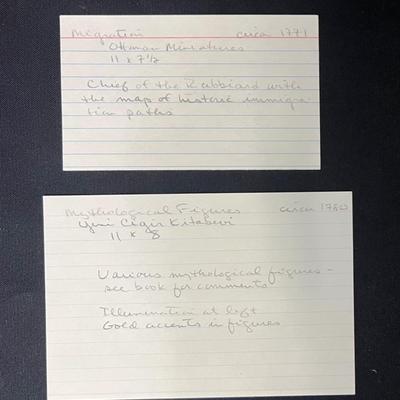 Migration circa 1771
Ottoman Miniatures
11 x 7 1/2
Chief of the Rabbiard with
the map of historic immigra
tion paths
Mythological Figures circa 1780
Yeni Cigir Kitabevi
11 x 8
Various mythological figures -
see book for comments
Illumination at left
Gold accents in figures